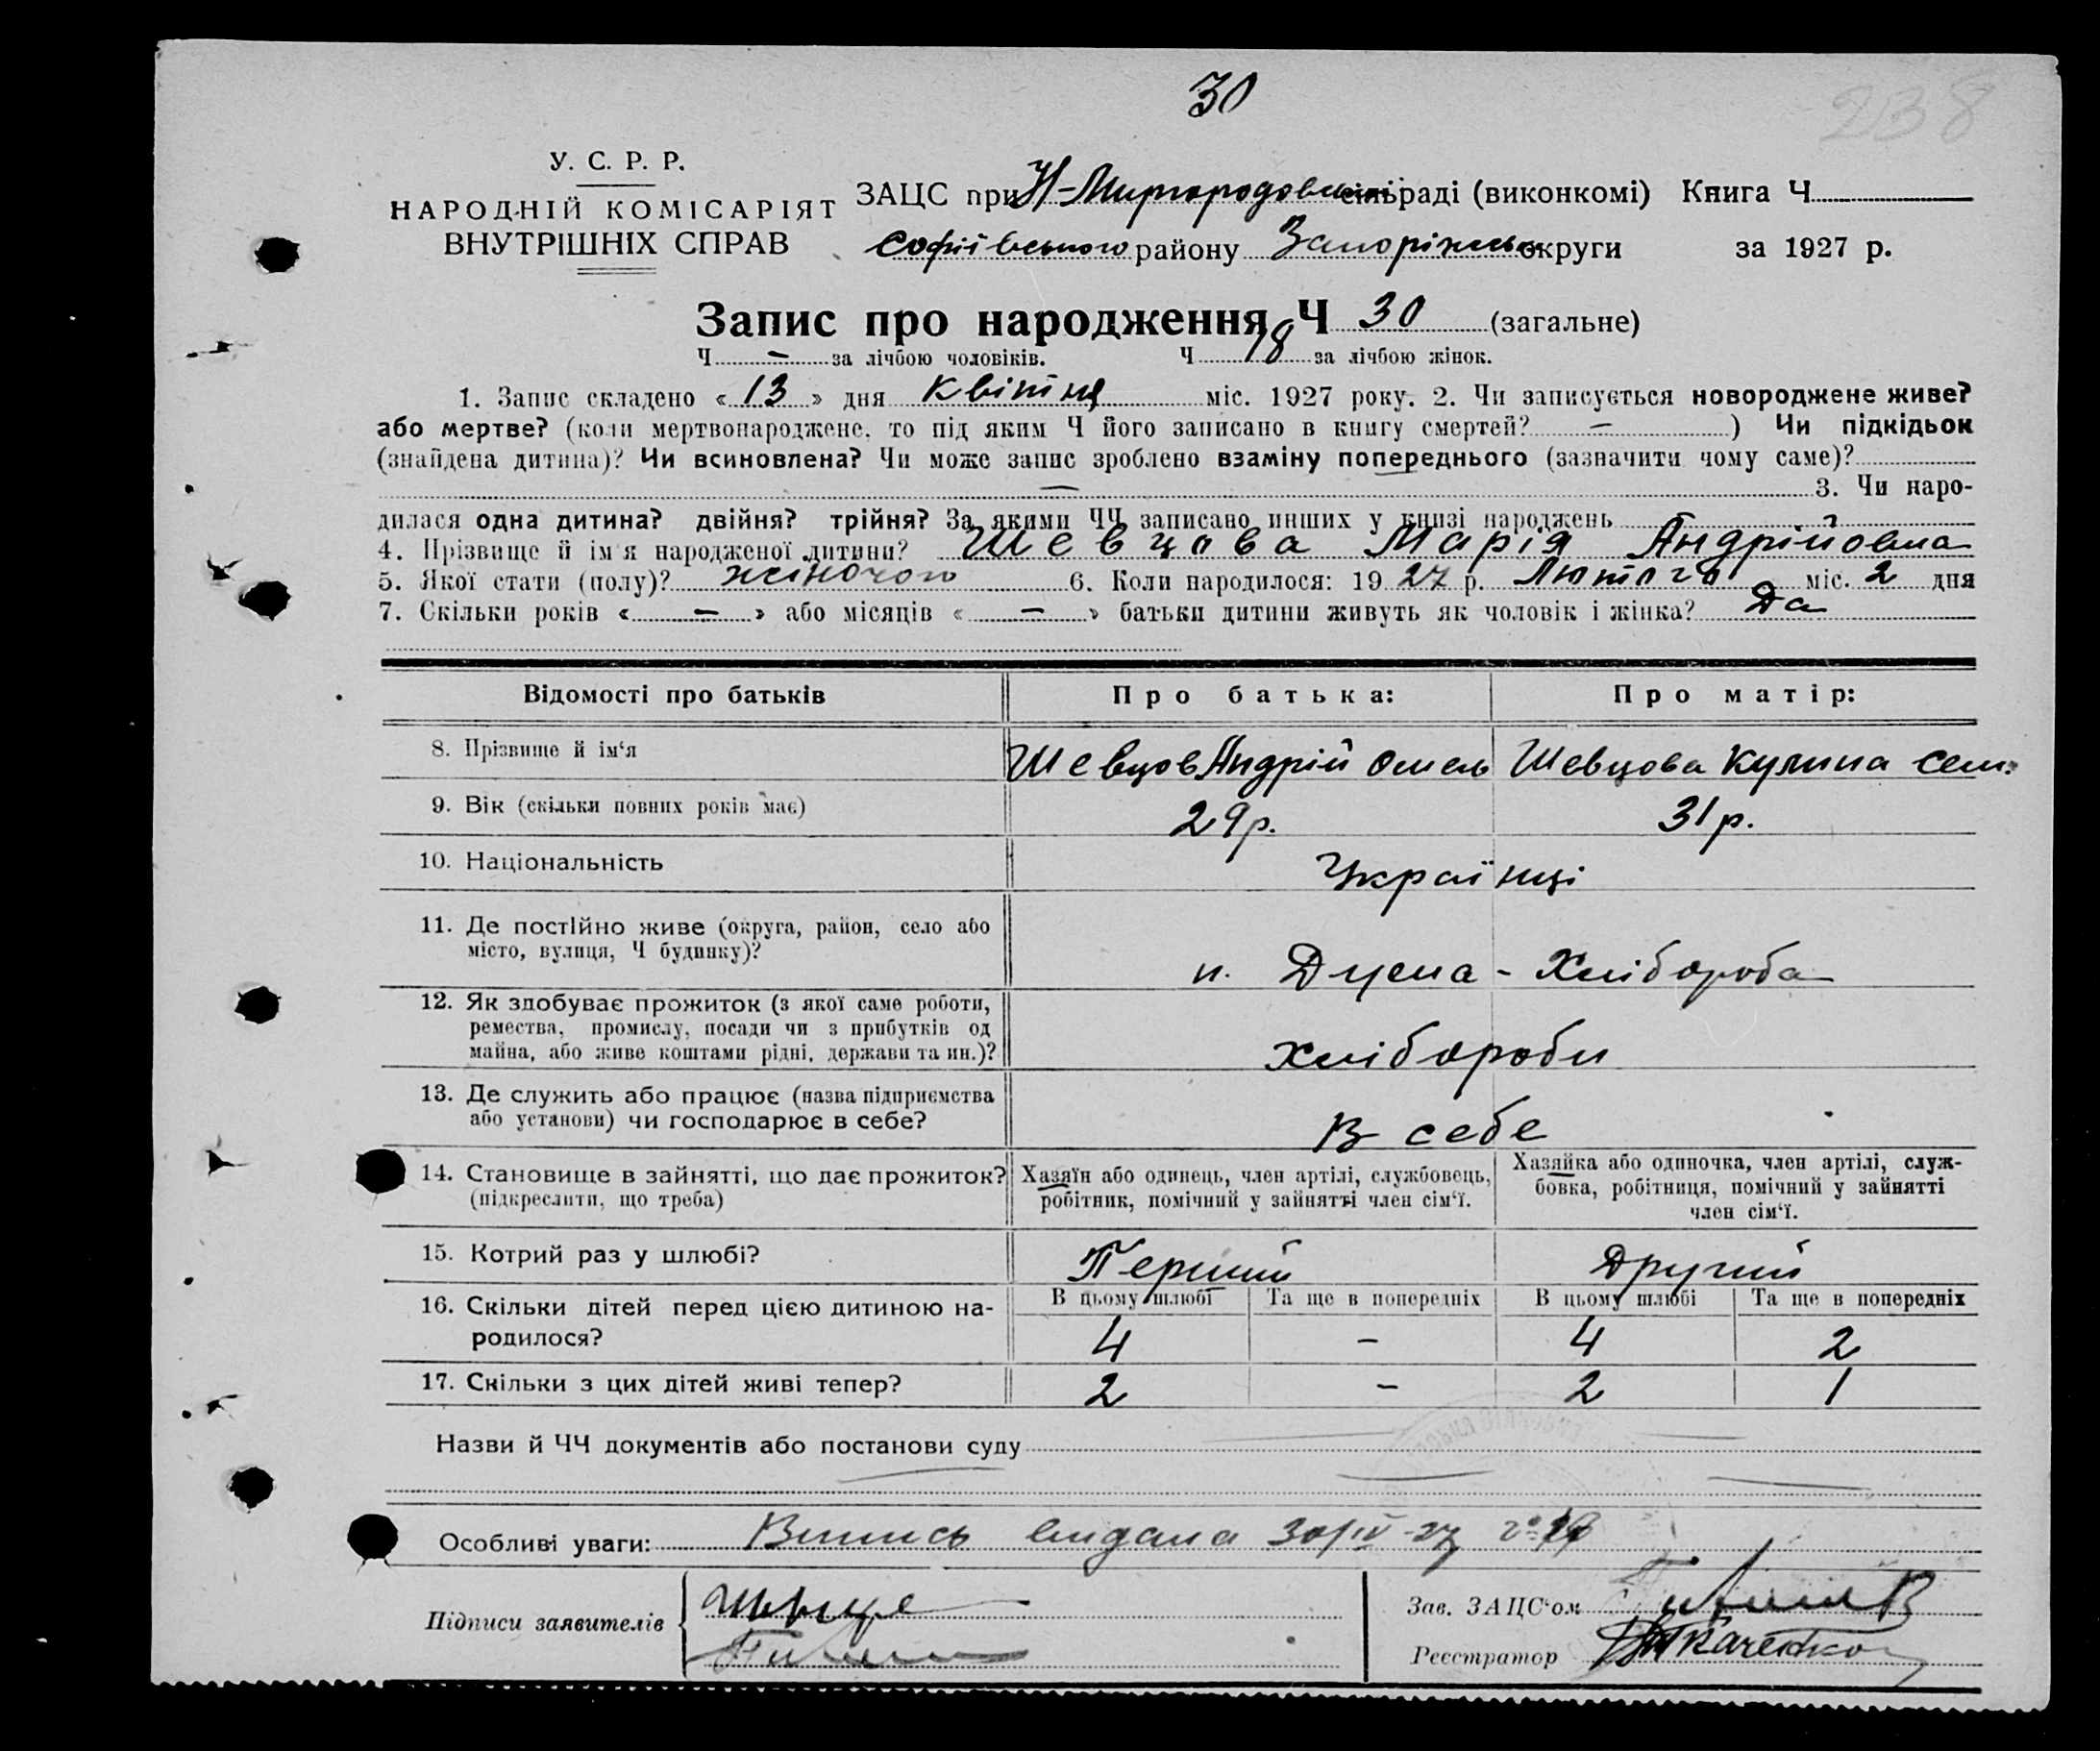 30
238
У. С. Р. Р.
НАРОДНІЙ КОМІСАРІЯТ
ВНУТРІШНІХ СПРАВ
ЗАЦС при Н-Миргородовській сільраді (виконкомі) Книга Ч
Софіївського району Запоріжської округи за 1927 р.
Запис про народження Ч 30 (загальне)
Ч — за лічбою чоловіків. Ч 18 за лічбою жінок.
1. Запис складено « 13 » дня квітня міс. 1927 року. 2. Чи записується новороджене живе?
або мертве? (коли мертвонароджене, то під яким Ч його записано в книгу смертей? — ) Чи підкідьок
(знайдена дитина)? Чи всиновлена? Чи може запис зроблено взаміну попереднього (зазначити чому саме)?
— 3. Чи наро-
дилася одна дитина? двійня? трійня? За якими ЧЧ записано инших у книзі народжень
4. Прізвище й ім'я народженої дитини? Шевцова Марія Андрійовна
5. Якої стати (полу)? жіночого 6. Коли народилося: 19 27 р. Лютого міс. 2 дня
7. Скільки років « — » або місяців « — » батьки дитини живуть як чоловік і жінка? Да
Відомості про батьків Про батька: Про матір:
8. Прізвище й ім‘я Шевцов Андрій Омель Шевцова Кулина Сем.
9. Вік (скільки повних років має) 29р. 31р.
10. Національність Українці
11. Де постійно живе (округа, район, село або
місто, вулиця, Ч будинку)? Хлібороба
12. Як здобуває прожиток (з якої саме роботи,
ремества, промислу, посади чи з прибутків од
майна, або живе коштами рідні, держави та ин.)? хлібороби
13. Де служить або працює (назва підприємства
або установи) чи господарює в себе? В себе
14. Становище в зайнятті, що дає прожиток?
(підкреслити, що треба)
Хазяїн або одинець, член артілі, службовець,
робітник, помічний у зайнятті член сім‘ї.
Хазяйка або одиночка, член артілі, служ-
бовка, робітниця, помічний у зайнятті
член сім‘ї.
15. Котрий раз у шлюбі? Перший Другий
16. Скільки дітей перед цією дитиною на-
родилося?
В цьому шлюбі Та ще в попередніх В цьому шлюбі Та ще в попередніх
4 – 4 2
17. Скільки з цих дітей живі тепер? 2 – 2 1
Назви й ЧЧ документів або постанови суду
Особливі уваги: Випись видана 30/IV-27
Підписи заявителів
Зав. ЗАЦС‘ом
Реєстратор Ткаченко